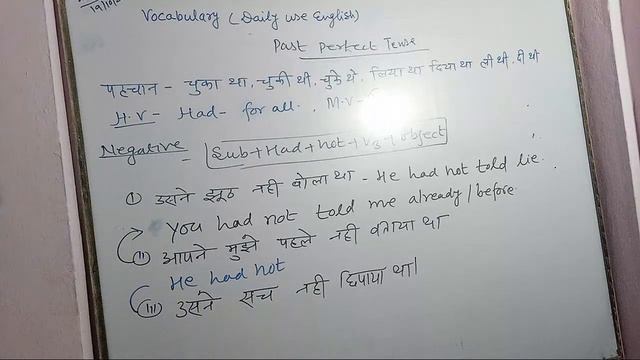 Vocabulary (Daily use English)
Past Perfect Tense
पहचान - चुका था, चुकी थी, चुके थे, लिया था दिया था ली थी, दी थी
H.V - Had - for all. M.V -
Negative - Sub + Had + not + V3 + object
① उसने झूठ नही बोला था - He had not told lie.
You had not told me already / before
② आपने मुझे पहले नही बताया था
He had not
③ उसने सच नही छिपाया था।